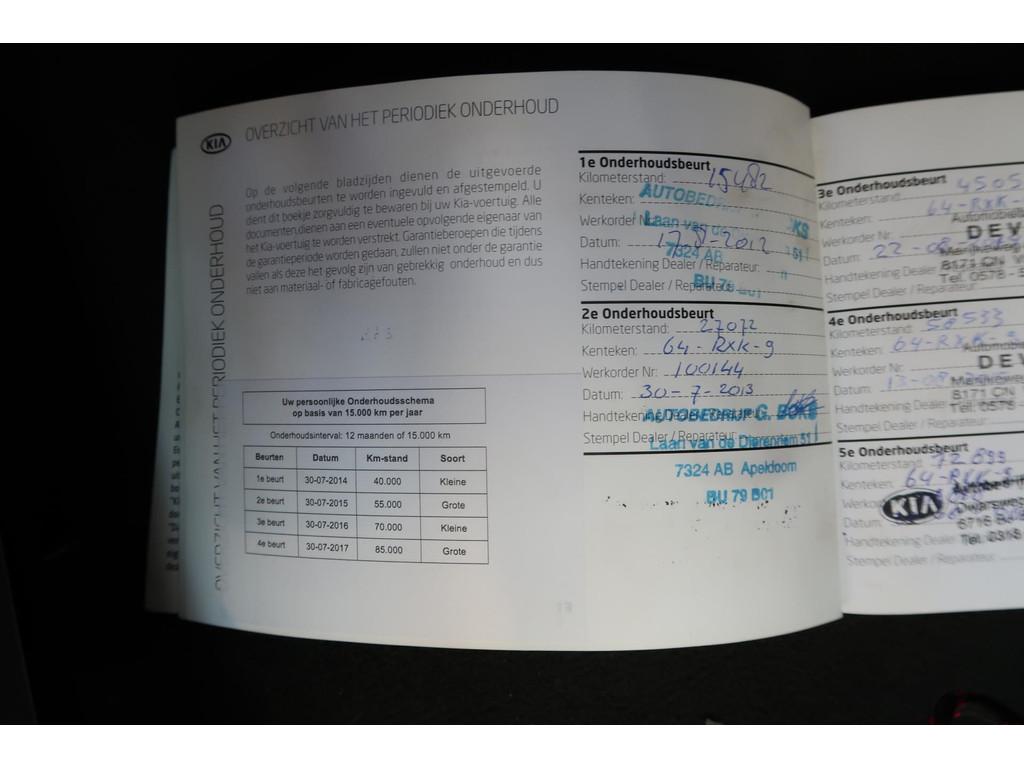 KIA
OVERZICHT VAN HET PERIODIEK ONDERHOUD
OVERZICHT VAN HET PERIODIEK ONDERHOUD
Op de volgende bladzijden dienen de uitgevoerde
onderhoudsbeurten te worden ingevuld en afgestempeld. U
dient dit boekje zorgvuldig te bewaren bij uw Kia-voertuig. Alle
documenten dienen aan een eventuele opvolgende eigenaar van
het Kia-voertuig te worden verstrekt. Garantieberoepen die tijdens
de garantieperiode worden gedaan, zullen niet onder de garantie
vallen als deze het gevolg zijn van gebrekkig onderhoud en dus
niet aan materiaal- of fabricagefouten.
Uw persoonlijke Onderhoudsschema
op basis van 15.000 km per jaar
Onderhoudsinterval: 12 maanden of 15.000 km
Beurten Datum Km-stand Soort
1e beurt 30-07-2014 40.000 Kleine
2e beurt 30-07-2015 55.000 Grote
3e beurt 30-07-2016 70.000 Kleine
4e beurt 30-07-2017 85.000 Grote
1e Onderhoudsbeurt
Kilometerstand: 15482
Kenteken: AUTOBEDR
Werkorder Laan van de
Datum: 2012
7324 AB
Handtekening Dealer / Reparateur:
Stempel Dealer / Reparateur:
BU 79 B01
2e Onderhoudsbeurt
Kilometerstand: 27072
Kenteken: 64-RXK-9
Werkorder Nr: 100144
Datum: 30-7-2013
AUTOBEDRIJF G.
Stempel Dealer / Reparateur:
Laan van de Dierenriem 51
7324 AB Apeldoorn
BU 79 B01
3e Onderhoudsbeurt
Kilometerstand: 4505
Kenteken: 64-RXK-
Werkorder Nr. DEV
Datum: 22-08
Handtekening Dealer 8171 CN
Stempel Dealer / Reparateur: Tel. 0578 -
4e Onderhoudsbeurt
Kilometerstand: 58533
Kenteken: 64-RXK-9
Werkorder Nr: DEV
Datum: 13-08
Handtekening Dealer 8171 CN
Tel. 0578
Stempel Dealer / Reparateur:
5e Onderhoudsbeurt
Kilometerstand 72899
Kenteken: 64-RXK-9
KIA
Datum:
6716
Handtekening Dealer Tel. 0318
Stempel Dealer / Reparateur: